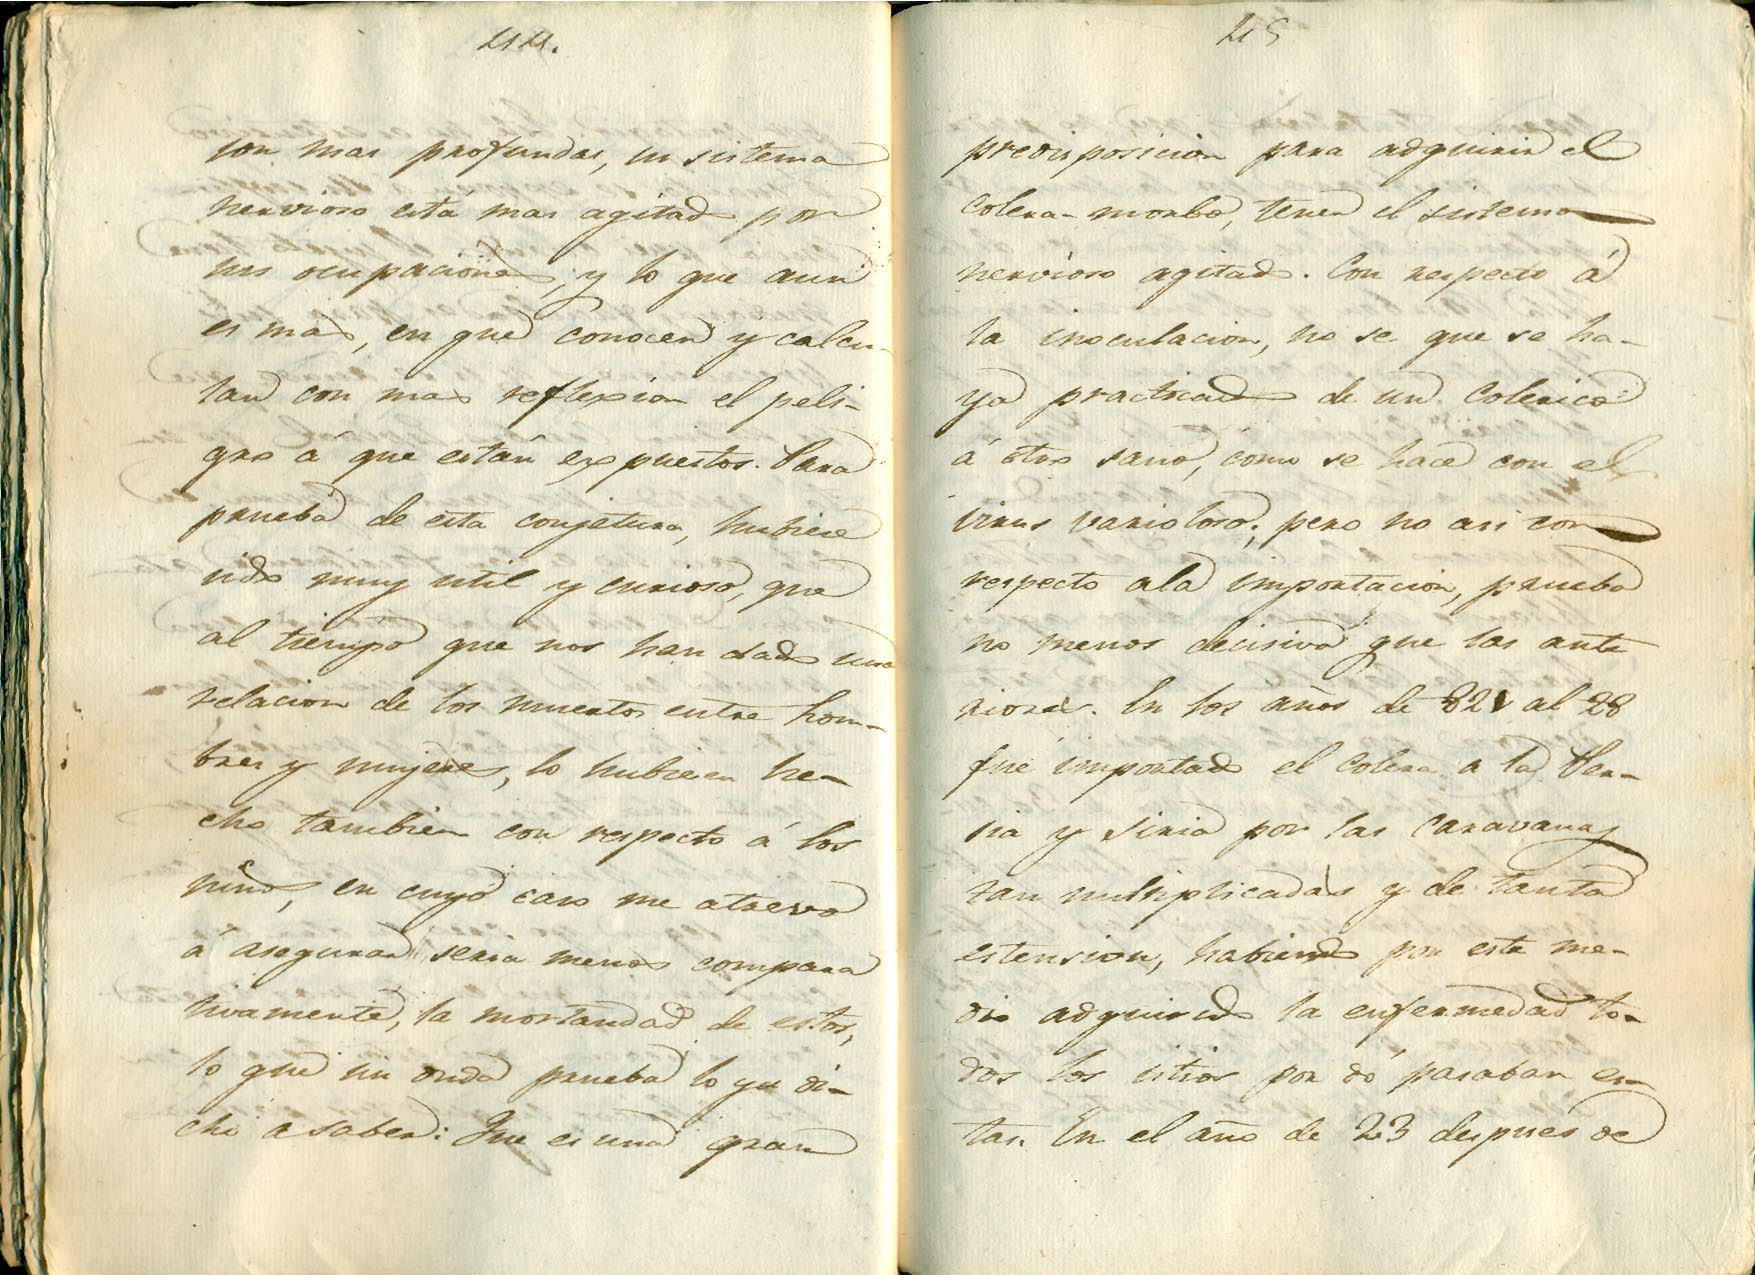 44.
son mas profundas, su sistema
nervioso está mas agitado por
sus ocupaciones, y lo que aun
es mas, en que conocen y calcu-
lan con mas reflexion el peli-
gro á que están expuestos. Para
prueba de esta conjetura, hubiese
sido muy util y curioso, que
al tiempo que nos han dado una
relacion de los muertos entre hom-
bres y mujeres, lo hubiesen he-
cho tambien con respecto á los
niños, en cuyo caso me atrevo
á asegurar seria menos compara
tivamente, la mortandad de estos,
lo que sin duda prueba lo ya di-
cho a saber: Que es una gran
45
predisposicion para adquirir el
colera-morbo, tener el sistema
nervioso agitado. Con respecto á
la inoculacion, no se que se ha-
ya practicado de un colerico
á otro sano, como se hace con el
virus varioloso; pero no asi con
respecto ala importacion, prueba
no menos decisiva que las ante
riores. En los años de 821 al 28
fué importado el colera a la Per-
sia y Siria por las caravanas
tan multiplicadas y de tanta
estension, habiendo por este me-
dio adquirido la enfermedad to-
dos los sitios por dó pasaban es-
tas. En el año de 23 despues de